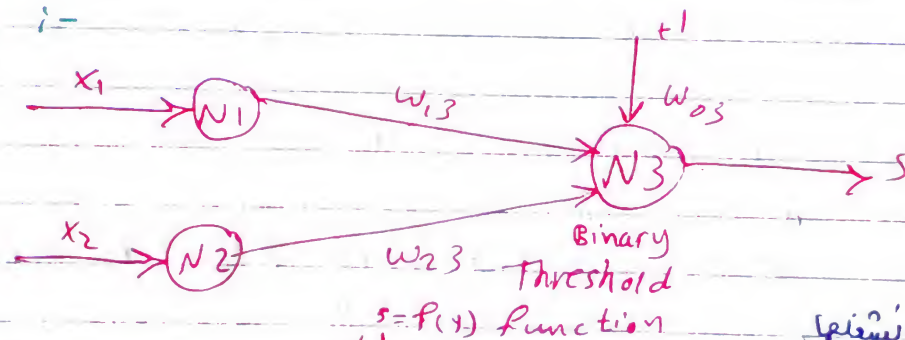 i-
+1
x1 N1 w13 w03
N3 S
x2 N2 w23 Binary
Threshold
s=f(y) function